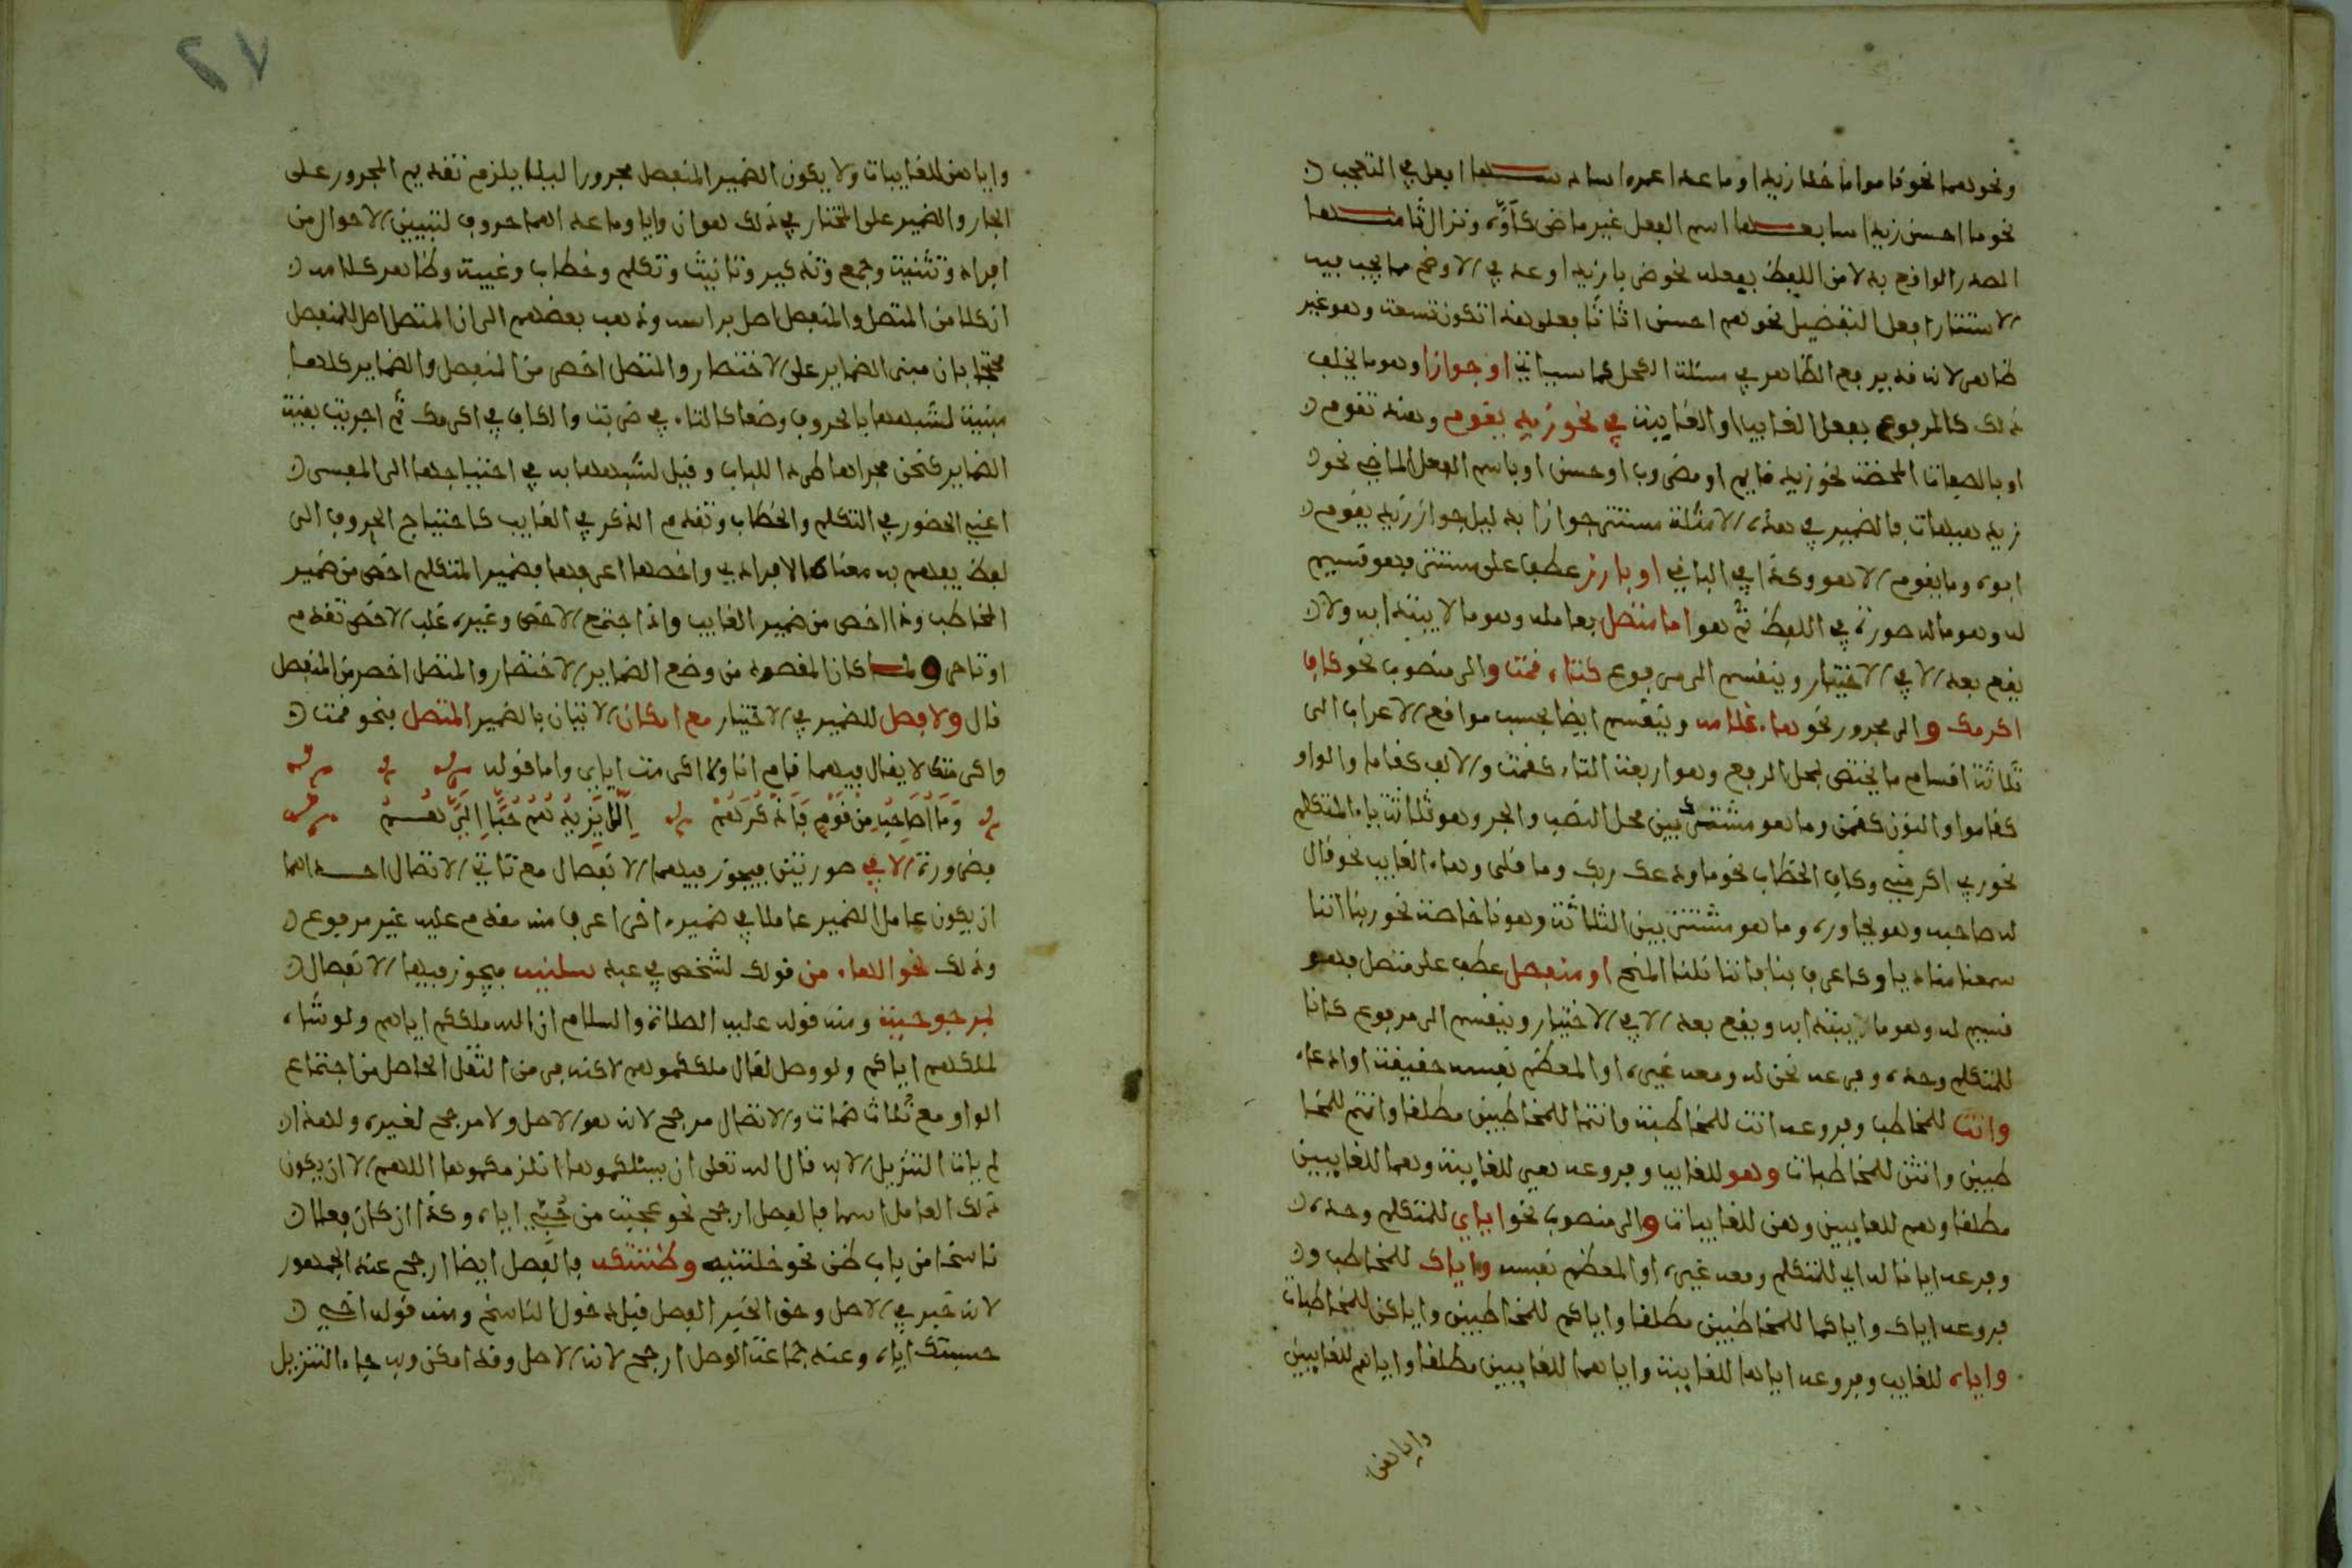 ونحوهما نحو قاموا ما خلا زيدا وما عدا عمرا سادسها افعل في التعجب
نحو ما احسن زيدا سابعها اسم الفعل غير ماض كأوه ونزال ثامنها
المصدر الواقع بدلا من اللفظ بفعله نحو ضربا زيدا وعد في الاوضح مما يجب فيه
الاستتار افعل التفضيل نحو هم احسن اثاثا فعلى هذا تكون تسعة وهو غير
ظاهر لانه قد يرفع الظاهر في مسئلة الكحل كما سياتي او جوازا وهو ما يخلفه
ذلك كالمرفوع بفعل الغايب او الغايبة في نحو زيد يقوم وهند تقوم
او بالصفات المحضة نحو زيد قايم او مضروب او حسن او باسم الفعل الماضي نحو
زيد هيهات فالضمير في هذه الامثلة مستتر جوازا بدليل جواز زيد يقوم
ابوه وما يقوم الا هو وكذا في الباقي او بارز عطف على مستتر فهو قسيم
له وهو ما له صورة في اللفظ ثم هو اما متصل بعامله وهو ما لا يبتدا به ولا
يقع بعد الا في الاختيار وينقسم الى مرفوع كتاء قمت والى منصوب نحو كاف
اكرمك والى مجرور نحو هاء غلامه وينقسم ايضا بحسب مواقع الاعراب الى
ثلاثة اقسام ما يختص بمحل الرفع وهو اربعة التاء كقمت والالف كقاما والواو
كقاموا والنون كقمن وما هو مشترك بين محل النصب والجر وهو ثلاثة ياء المتكلم
نحو ربي اكرمني وكاف الخطاب نحو ما ودعك ربك وما قلى وهاء الغايب نحو قال
له صاحبه وهو يحاوره وما هو مشترك بين الثلاثة وهو نا خاصة نحو ربنا اننا
سمعنا مناديا وكاعرف بنا فاننا نلنا المنح او منفصل عطف على متصل فهو
قسيم له وهو ما يبتدا به ويقع بعد الا في الاختيار وينقسم الى مرفوع كانا
للمتكلم وحده وفرعه نحن له ومعه غيره او المعظم نفسه حقيقة او ادعاء
وانت للمخاطب وفروعه انت للمخاطبة وانتما للمخاطبين مطلقا وانتم للمخا
طبين وانتن للمخاطبات وهو للغايب وفروعه هي للغايبة وهما للغايبين
مطلقا وهم للغايبين وهن للغايبات والى منصوب نحو اياي للمتكلم وحده
وفرعه ايانا له اي للمتكلم ومعه غيره او المعظم نفسه واياك للمخاطب و
فروعه اياك واياكما للمخاطبين مطلقا واياكم للمخاطبين واياكن للمخاطبات
واياه للغايب وفروعه اياها للغايبة واياهما للغايبين مطلقا واياهم للغايبين
واياهن
٢٧
واياهن للغايبات ولا يكون الضمير المنفصل مجرورا ليلا يلزم تقديم المجرور على
الجار والضمير على المختار في ذلك هو ان وايا وما عداهما حروف لتبيين الاحوال من
افراد وتثنية وجمع وتذكير وتانيث وتكلم وخطاب وغيبة وظاهر كلامه
ان كلا من المتصل والمنفصل اصل براسه وذهب بعضهم الى ان المتصل اصل للمنفصل
محتجا بان مبنى الضماير على الاختصار والمتصل اخصر من المنفصل والضماير كلها
مبنية لشبهها بالحروف وضعا كالتاء في ضربت والكاف في اكرمك ثم اجريت بقية
الضماير كنحن مجراها طردا للباب وقيل لشبهها به في احتياجها الى المفسر
اعني الحضور في التكلم والخطاب وتقدم الذكر في الغايب كاحتياج الحروف الى
لفظ يفهم به معناه الافرادي واخصها اعرفها فضمير المتكلم اخص من ضمير
المخاطب وذا اخص من ضمير الغايب واذا اجتمع الاخص وغيره غلب الاخص تقدم
او تاخر ولما كان المقصود من وضع الضماير الاختصار والمتصل اخصر من المنفصل
قال ولا فصل للضمير في الاختيار مع امكان الاتيان بالضمير المتصل فنحو قمت
واكرمتك لا يقال فيهما قام انا ولا اكرمت اياك واما قوله
وَمَا اُصَاحِبُ مِنْ قَوْمٍ فَاَذْكُرَهُمْ اِلَّا يَزِيدُهُمْ حُبًّا اِلَيَّ هُمْ
فضرورة الا في صورتين فيجوز فيهما الانفصال مع تاتي الاتصال احداهما
ان يكون عامل الضمير عاملا في ضمير اخر اعرف منه مقدم عليه غير مرفوع
وذلك نحو الهاء من قولك لشخص في عبد سلنيه فيجوز فيها الانفصال
بمرجوحية ومنه قوله عليه الصلاة والسلام ان الله ملككم اياهم ولو شاء
لملكهم اياكم ولو وصل لقال ملككموهم لاكنه فر من الثقل الحاصل من اجتماع
الواو مع ثلاث ضمات والاتصال مرجح لانه هو الاصل ولا مرجح لغيره ولهذا
لم يات التنزيل الا به قال الله تعلى ان يسئلكموها انلزمكموها اللهم الا ان يكون
ذلك العامل اسما فالفصل ارجح نحو عجبت من حُبِّي اياه وكذا ان كان فعلا
ناسخا من باب ظن نحو خلتنيه وظننتكه فالفصل ايضا ارجح عند الجمهور
لانه خبر في الاصل وحق الخبر الفصل قبل دخول الناسخ ومنه قوله اخي
حسبتك اياه وعند جماعة الوصل ارجح لانه الاصل وقد امكن وبه جاء التنزيل